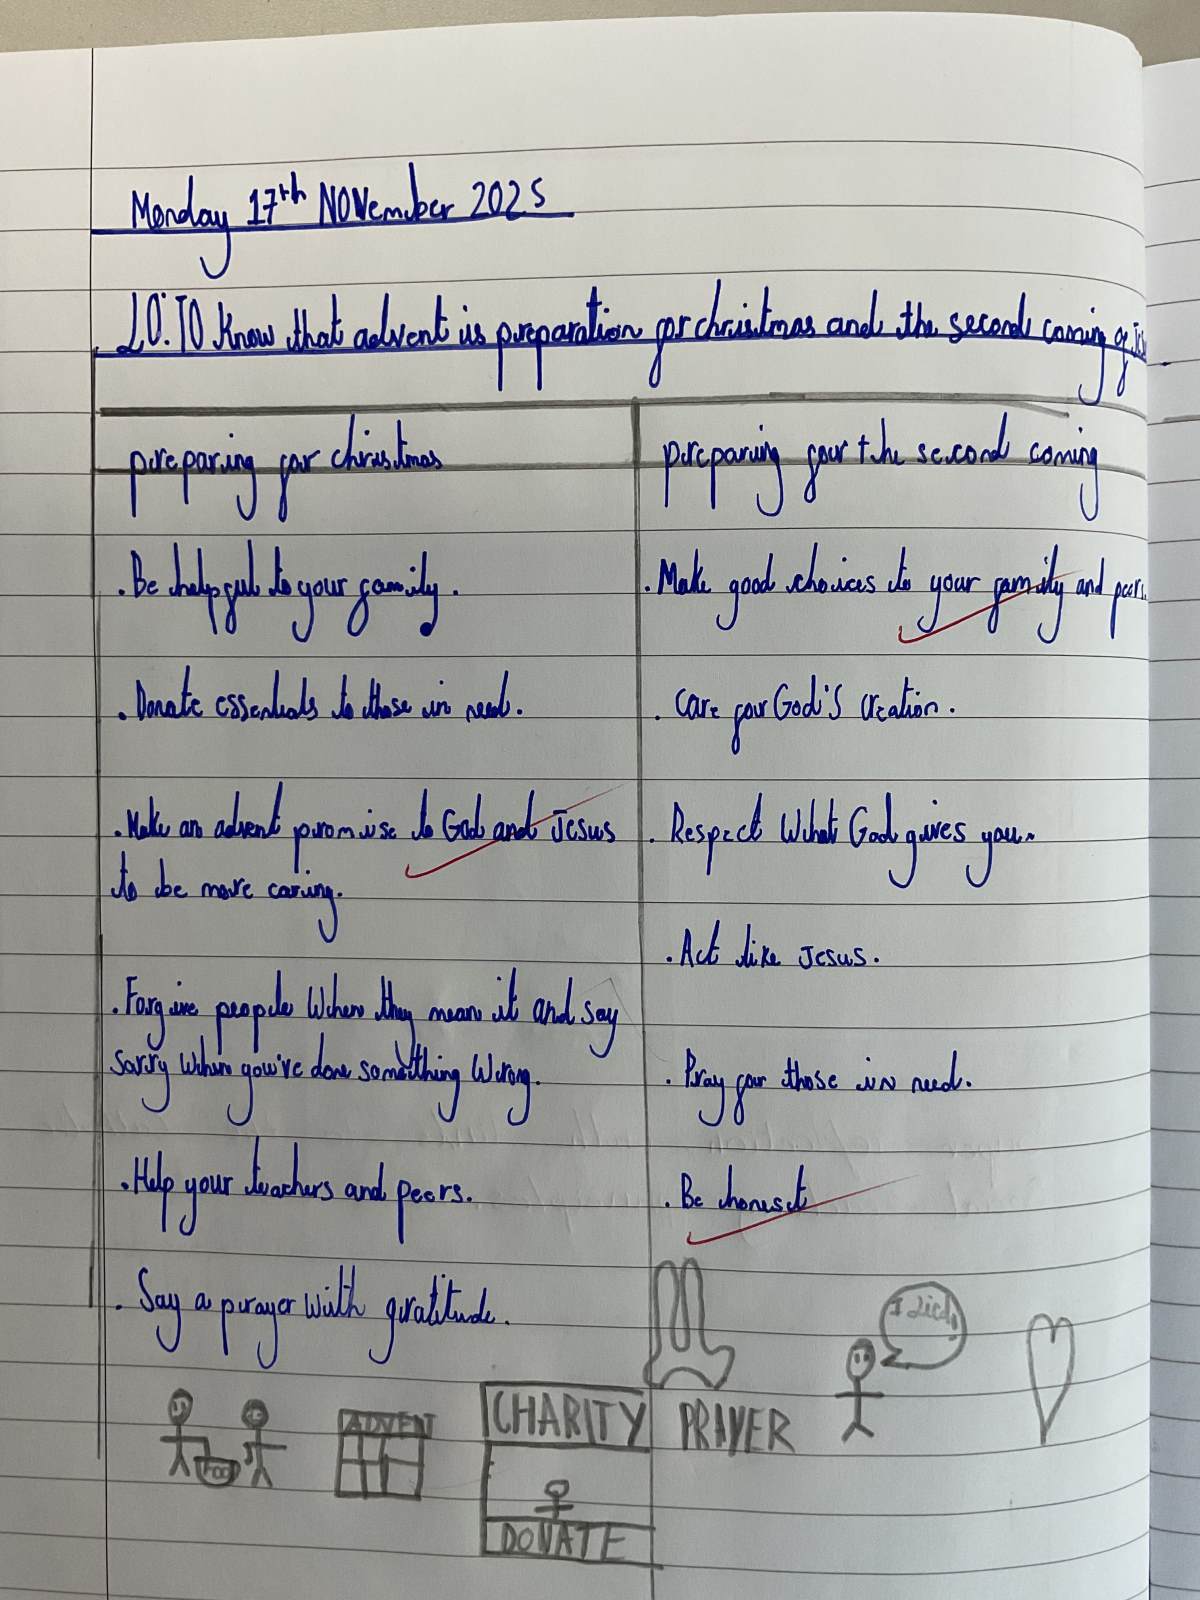 Monday 17th November 2025
LO: TO Know that advent is preparation for christmas and the second coming of
preparing for christmas
. Be helpful to your family.
. Donate essentials to those in need.
. Make an advent promise to God and Jesus
to be more caring.
. Forgive people When they mean it and say
sorry when you've done something Wrong.
. Help your teachers and peers.
. Say a prayer with gratitude.
preparing for the second coming
. Make good choices to your family and peers.
. Care for God's creation.
. Respect What God gives you.
. Act like Jesus.
. Pray for those in need.
. Be honest
I lied
FOOD
ADVENT
CHARITY
DONATE
PRAYER